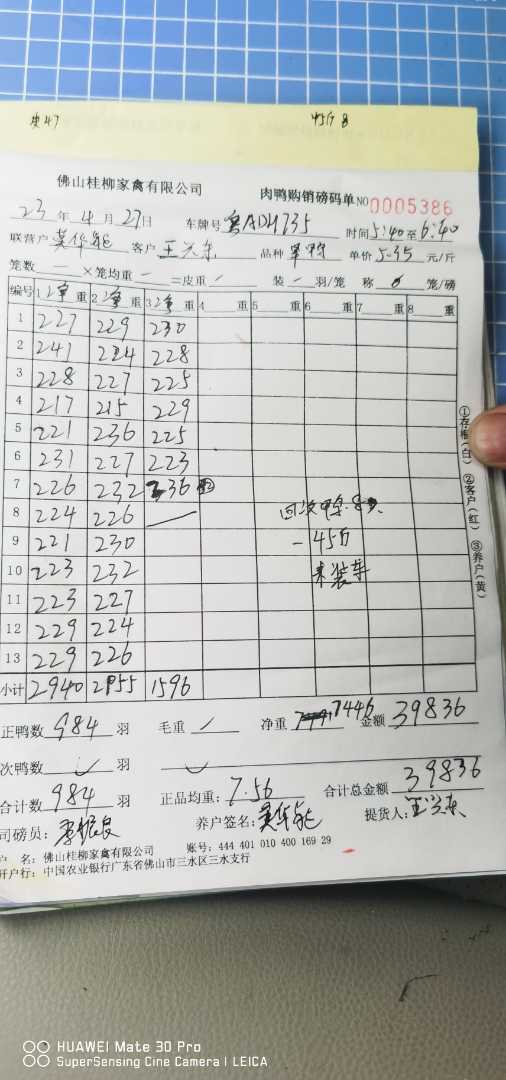 佛山桂柳家禽有限公司 肉鸭购销磅码单 NO 0005386
23 年 4 月 27 日 车牌号 时间 5:40 至 6:40
联营户 客户 品种 单价 5.35 元/斤
笼数 — ×笼均重 — =皮重 装 羽/笼 称 6 笼/磅
编号 1 重 2 重 3 重 4 重 5 重 6 重 7 重 8 重
1 227 229 230
2 241 224 228
3 228 227 225
4 217 215 229
5 221 236 225
6 231 227 223
7 226 232 236
8 224 226 —
9 221 230
10 223 232
11 223 227
12 229 224
13 229 226
小计 2940 2955 1596
回收 8只
- 45斤
未装车
①存根(白) ②客户(红) ③养户(黄)
正鸭数 984 羽 毛重 净重 7446 金额 39836
次鸭数 羽
合计数 984 羽 正品均重: 7.56 合计总金额 39836
司磅员: 养户签名: 提货人:
户 名: 佛山桂柳家禽有限公司 账号: 444 401 010 400 169 29
开户行: 中国农业银行广东省佛山市三水区三水支行
HUAWEI Mate 30 Pro
SuperSensing Cine Camera | LEICA